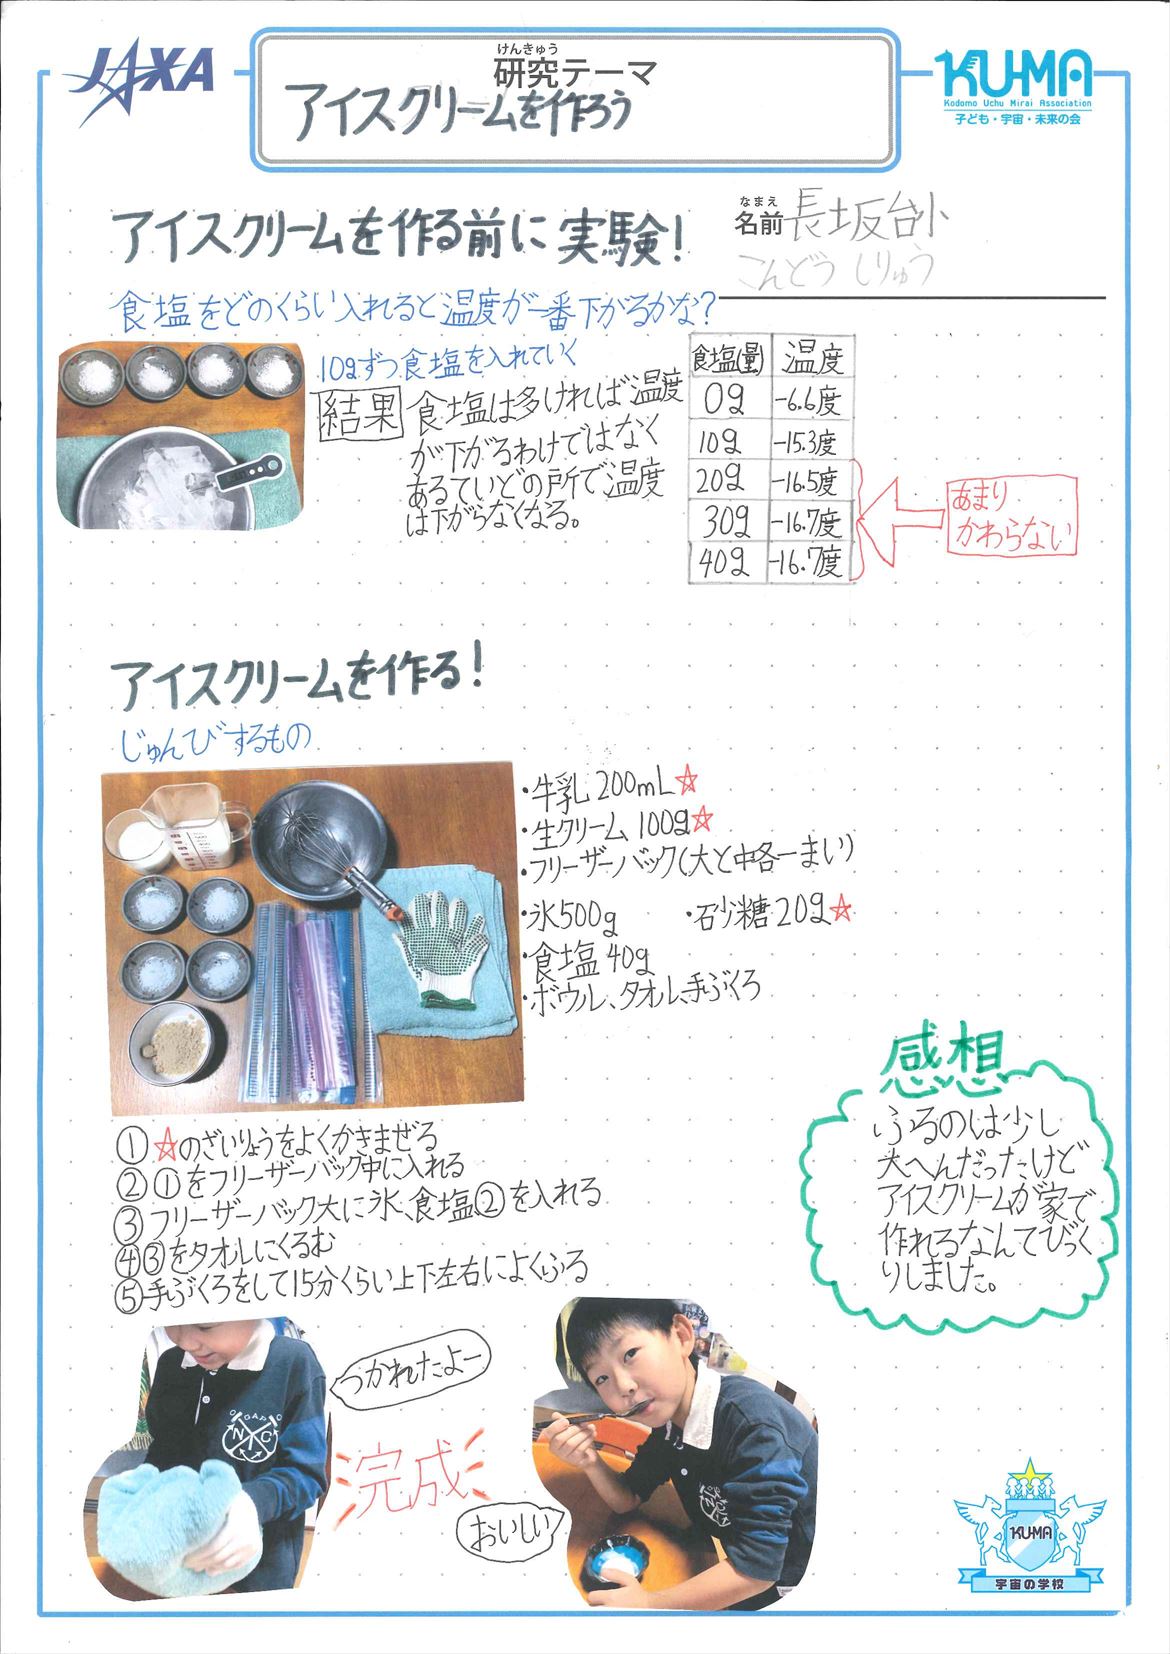 JAXA
けんきゅう
研究テーマ
アイスクリームを作ろう
KU-MA
Kodomo Uchu Mirai Association
子ども・宇宙・未来の会
アイスクリームを作る前に実験!
なまえ
名前 長坂台小
こんどう しりゅう
食塩をどのくらい入れると温度が一番下がるかな?
10gずつ食塩を入れていく
結果 食塩は多ければ温度
が下がるわけではなく
あるていどの所で温度
は下がらなくなる。
食塩(量) 温度
0g -6.6度
10g -15.3度
20g -16.5度
30g -16.7度
40g -16.7度
あまり
かわらない
アイスクリームを作る!
じゅんびするもの
・牛乳 200mL☆
・生クリーム 100g☆
・フリーザーバック(大と中各一まい)
・氷500g ・砂糖20g☆
・食塩40g
・ボウル、タオル、手ぶくろ
①☆のざいりょうをよくかきまぜる
②①をフリーザーバック中に入れる
③フリーザーバック大に氷、食塩②を入れる
④③をタオルにくるむ
⑤手ぶくろをして15分くらい上下左右によくふる
感想
ふるのは少し
大へんだったけど
アイスクリームが家で
作れるなんてびっく
りしました。
つかれたよー
完成
おいしい
GAP
N C
KU-MA
宇宙の学校